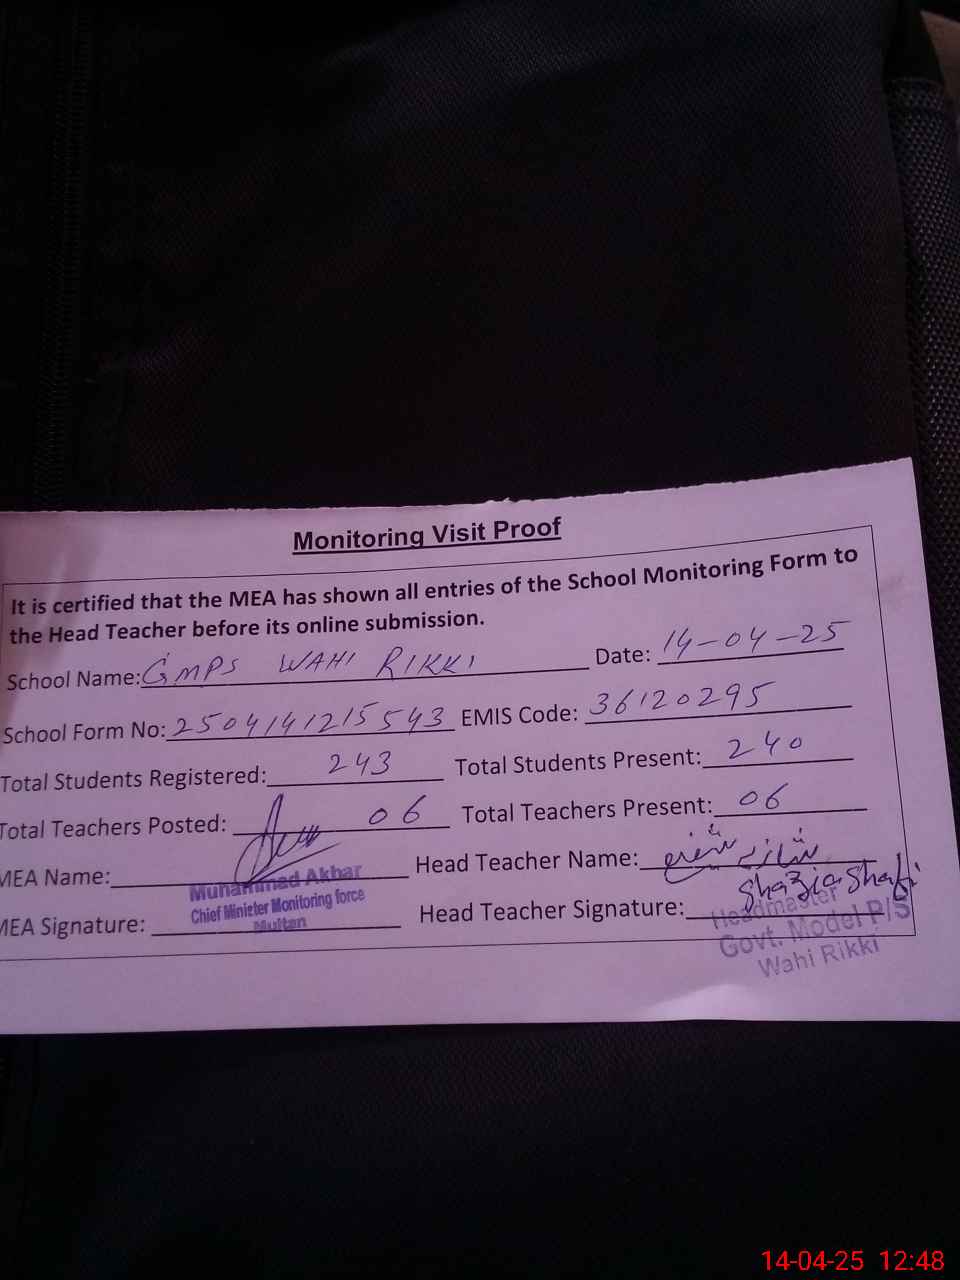 Monitoring Visit Proof
It is certified that the MEA has shown all entries of the School Monitoring Form to
the Head Teacher before its online submission.
School Name: GMPS WAHI RIKKI Date: 14-04-25
School Form No: 2504141215543 EMIS Code: 36120295
Total Students Registered: 243 Total Students Present: 240
Total Teachers Posted: 06 Total Teachers Present: 06
MEA Name: Head Teacher Name: شازیہ شفیع
Muhammad Akhar
Chief Minieter Monitoring force
Multan
MEA Signature: Head Teacher Signature: Shazia Shafi
Headmaster
Govt. Model P/S
Wahi Rikki
14-04-25 12:48